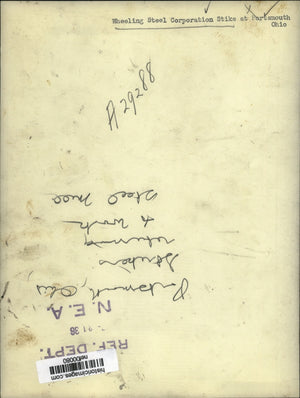 Wheeling Steel Corporation Stike at Portsmouth
Ohio
A 29288
Portsmouth, Ohio
Strikers
returning
to work
steel mill
N.E.A.
REF. DEPT.
historicimages.com
nef00080